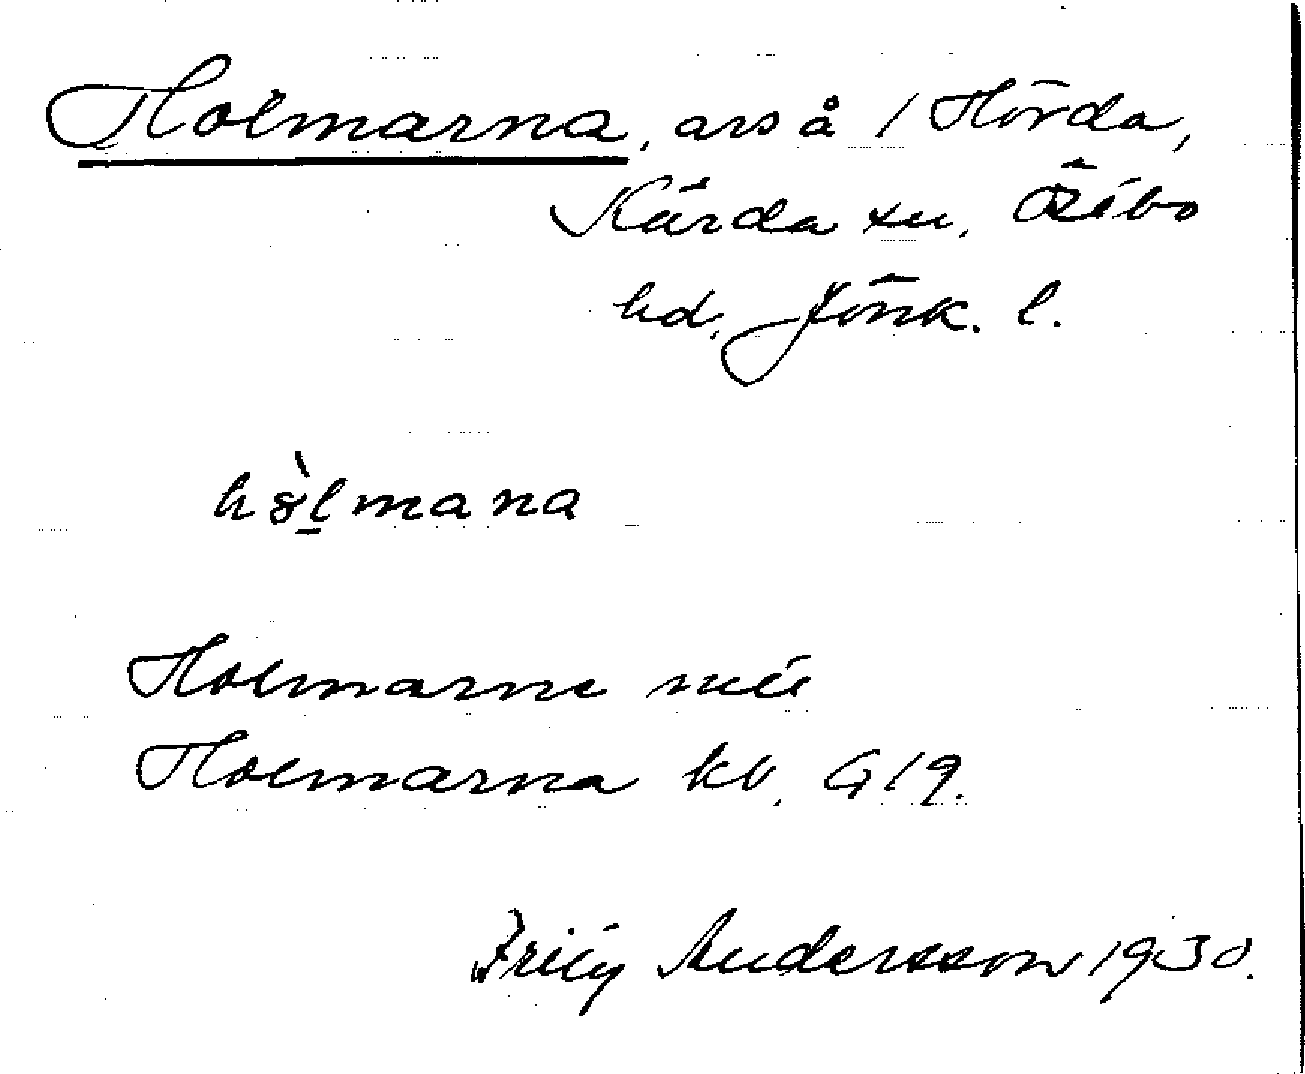 Holmarna, avs å / Hörda,
Kärda sn, Östbo
hd, Jönk. l.
hòlmana
Holmarne
Holmarna kv. G19.
Andersson 1930.